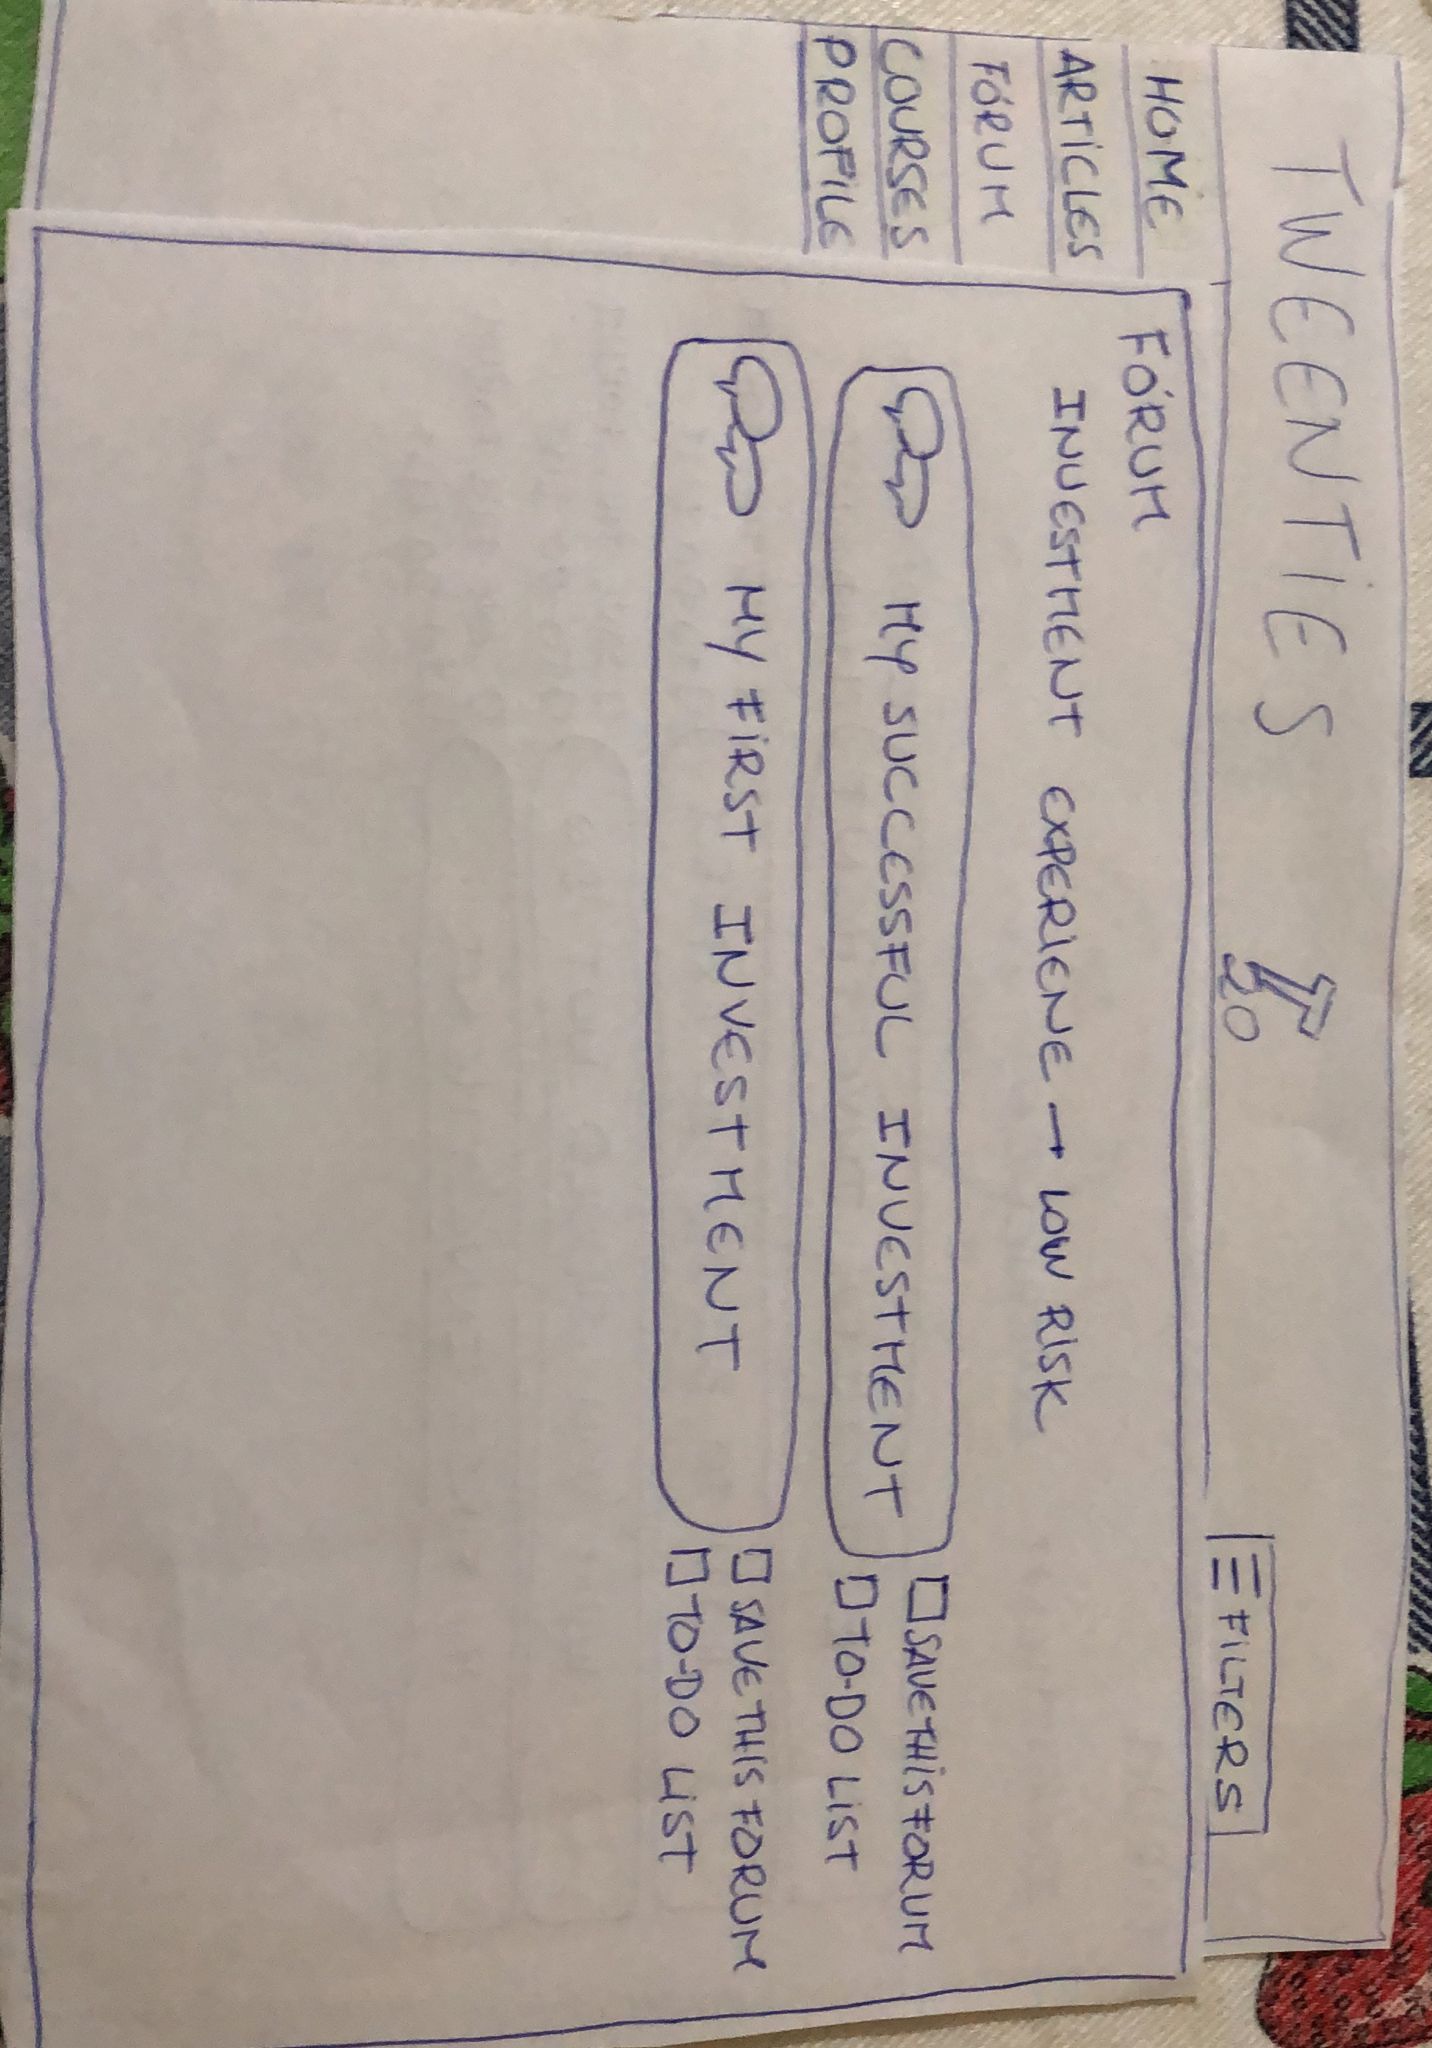 TWEENTIES
20
FILTERS
HOME
ARTICLES
FÓRUM
COURSES
PROFILE
FÓRUM
INVESTMENT EXPERIENE → LOW RISK
MY SUCCESSFUL INVESTMENT
SAVE THIS FORUM
TO-DO LIST
MY FIRST INVESTMENT
SAVE THIS FORUM
TO-DO LIST